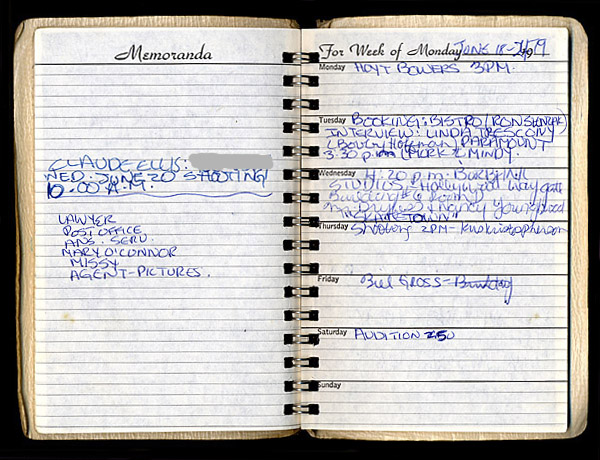 Memoranda
CLAUDE ELLIS:
WED. JUNE 20 SHOOTING
10:00 A.M.
LAWYER
POST OFFICE
ANS. SERV.
MARY O'CONNOR
MISSY
AGENT-PICTURES.
For Week of Monday JUNE 18-
Monday HOYT BOWERS 3PM.
Tuesday BOOKING: BISTRO (RON
INTERVIEW: LINDA
PARAMOUNT
3:30 p.m. (MORK & MINDY.
Wednesday 4:20 p.m. Burbank
STUDIOS - Hollywood Way gate
Building #6 Room
& Nancy
"KATESTOWN"
Thursday Shooting 2PM - Kris Kristofferson
Friday Bill GROSS - Birthday
Saturday AUDITION 250
Sunday